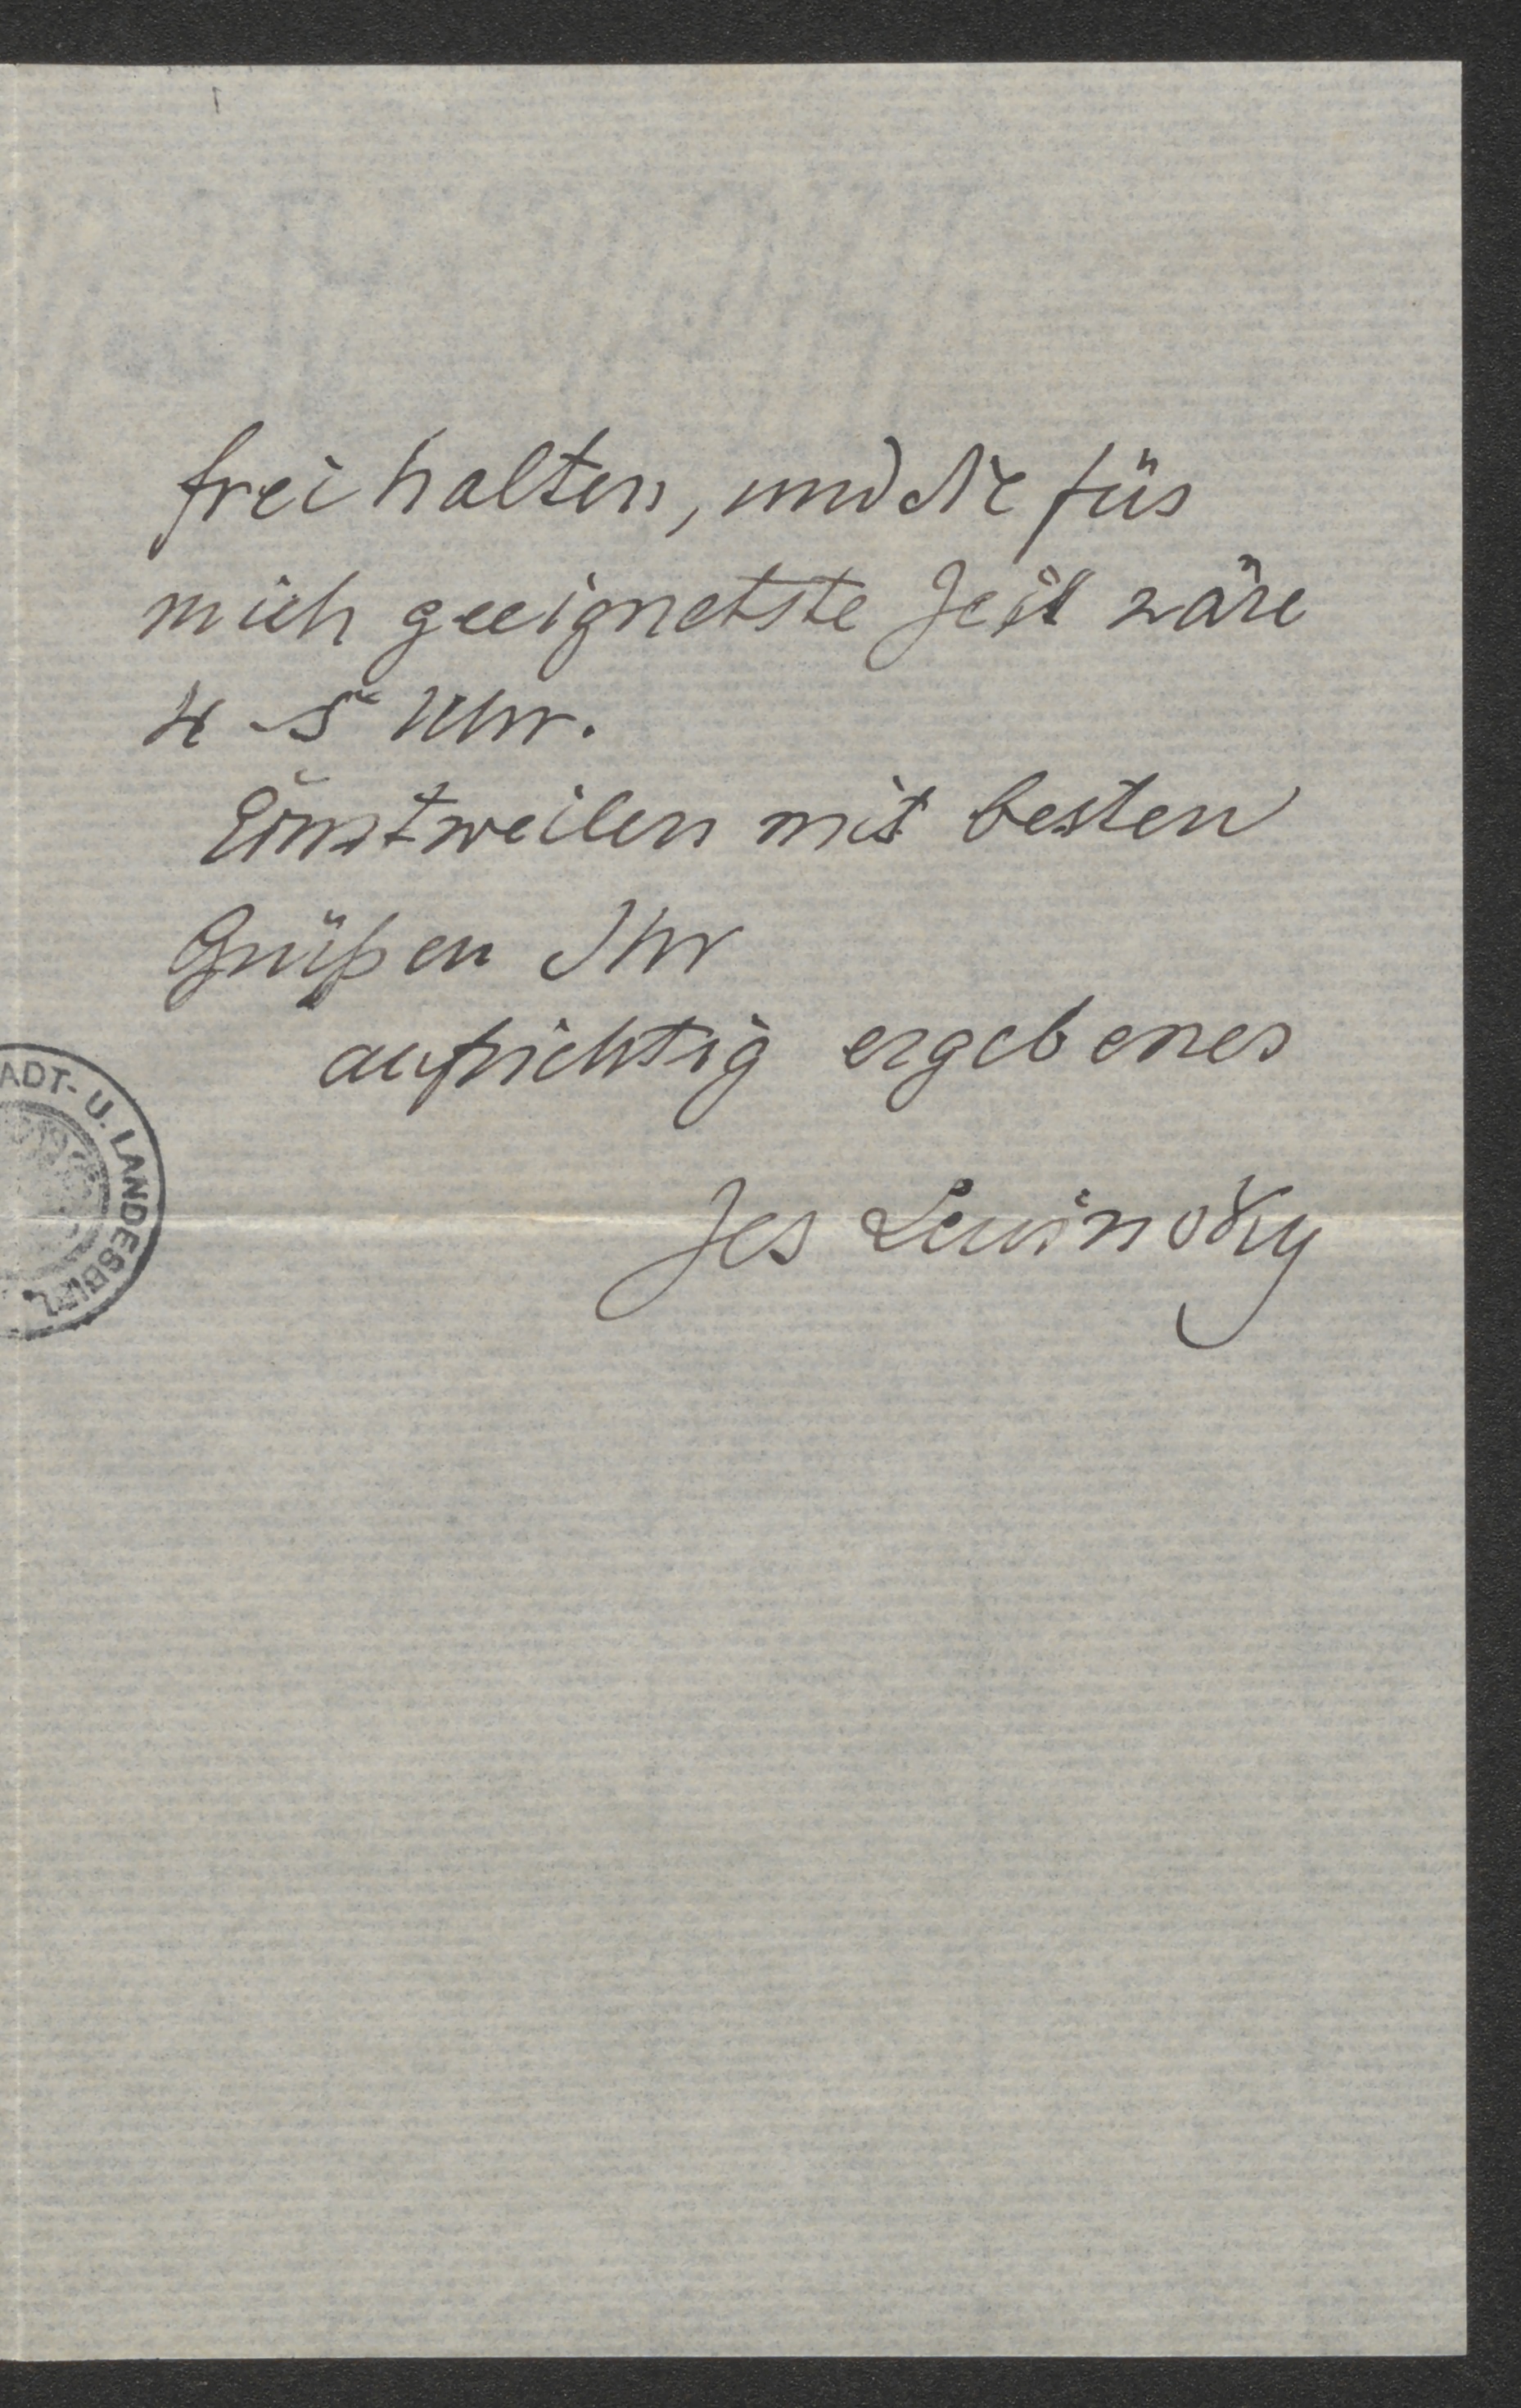 frei halten, und die für
mich geeignetste Zeit wäre
4-5 Uhr.
Einstweilen mit besten
Grüßen Ihr
aufrichtig ergebener
Jes Lewinsky
ADT- U. LANDESBIBL.